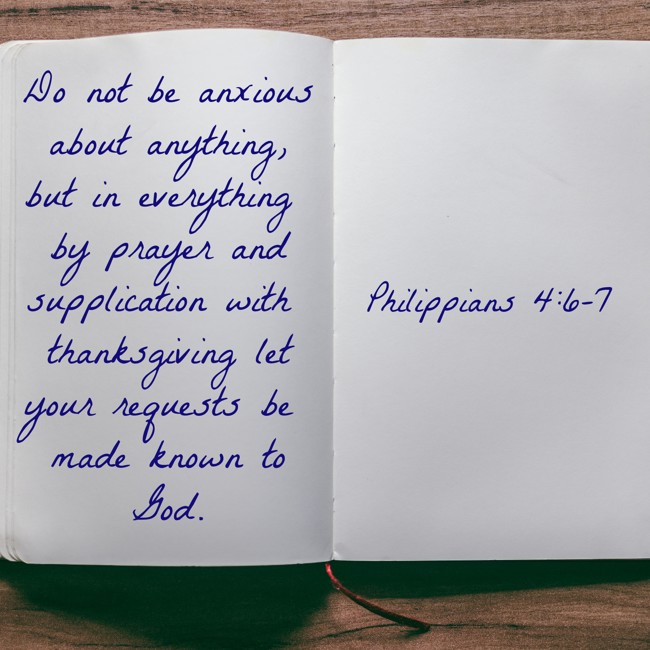 Do not be anxious
about anything,
but in everything
by prayer and
supplication with
thanksgiving let
your requests be
made known to
God.
Philippians 4:6-7